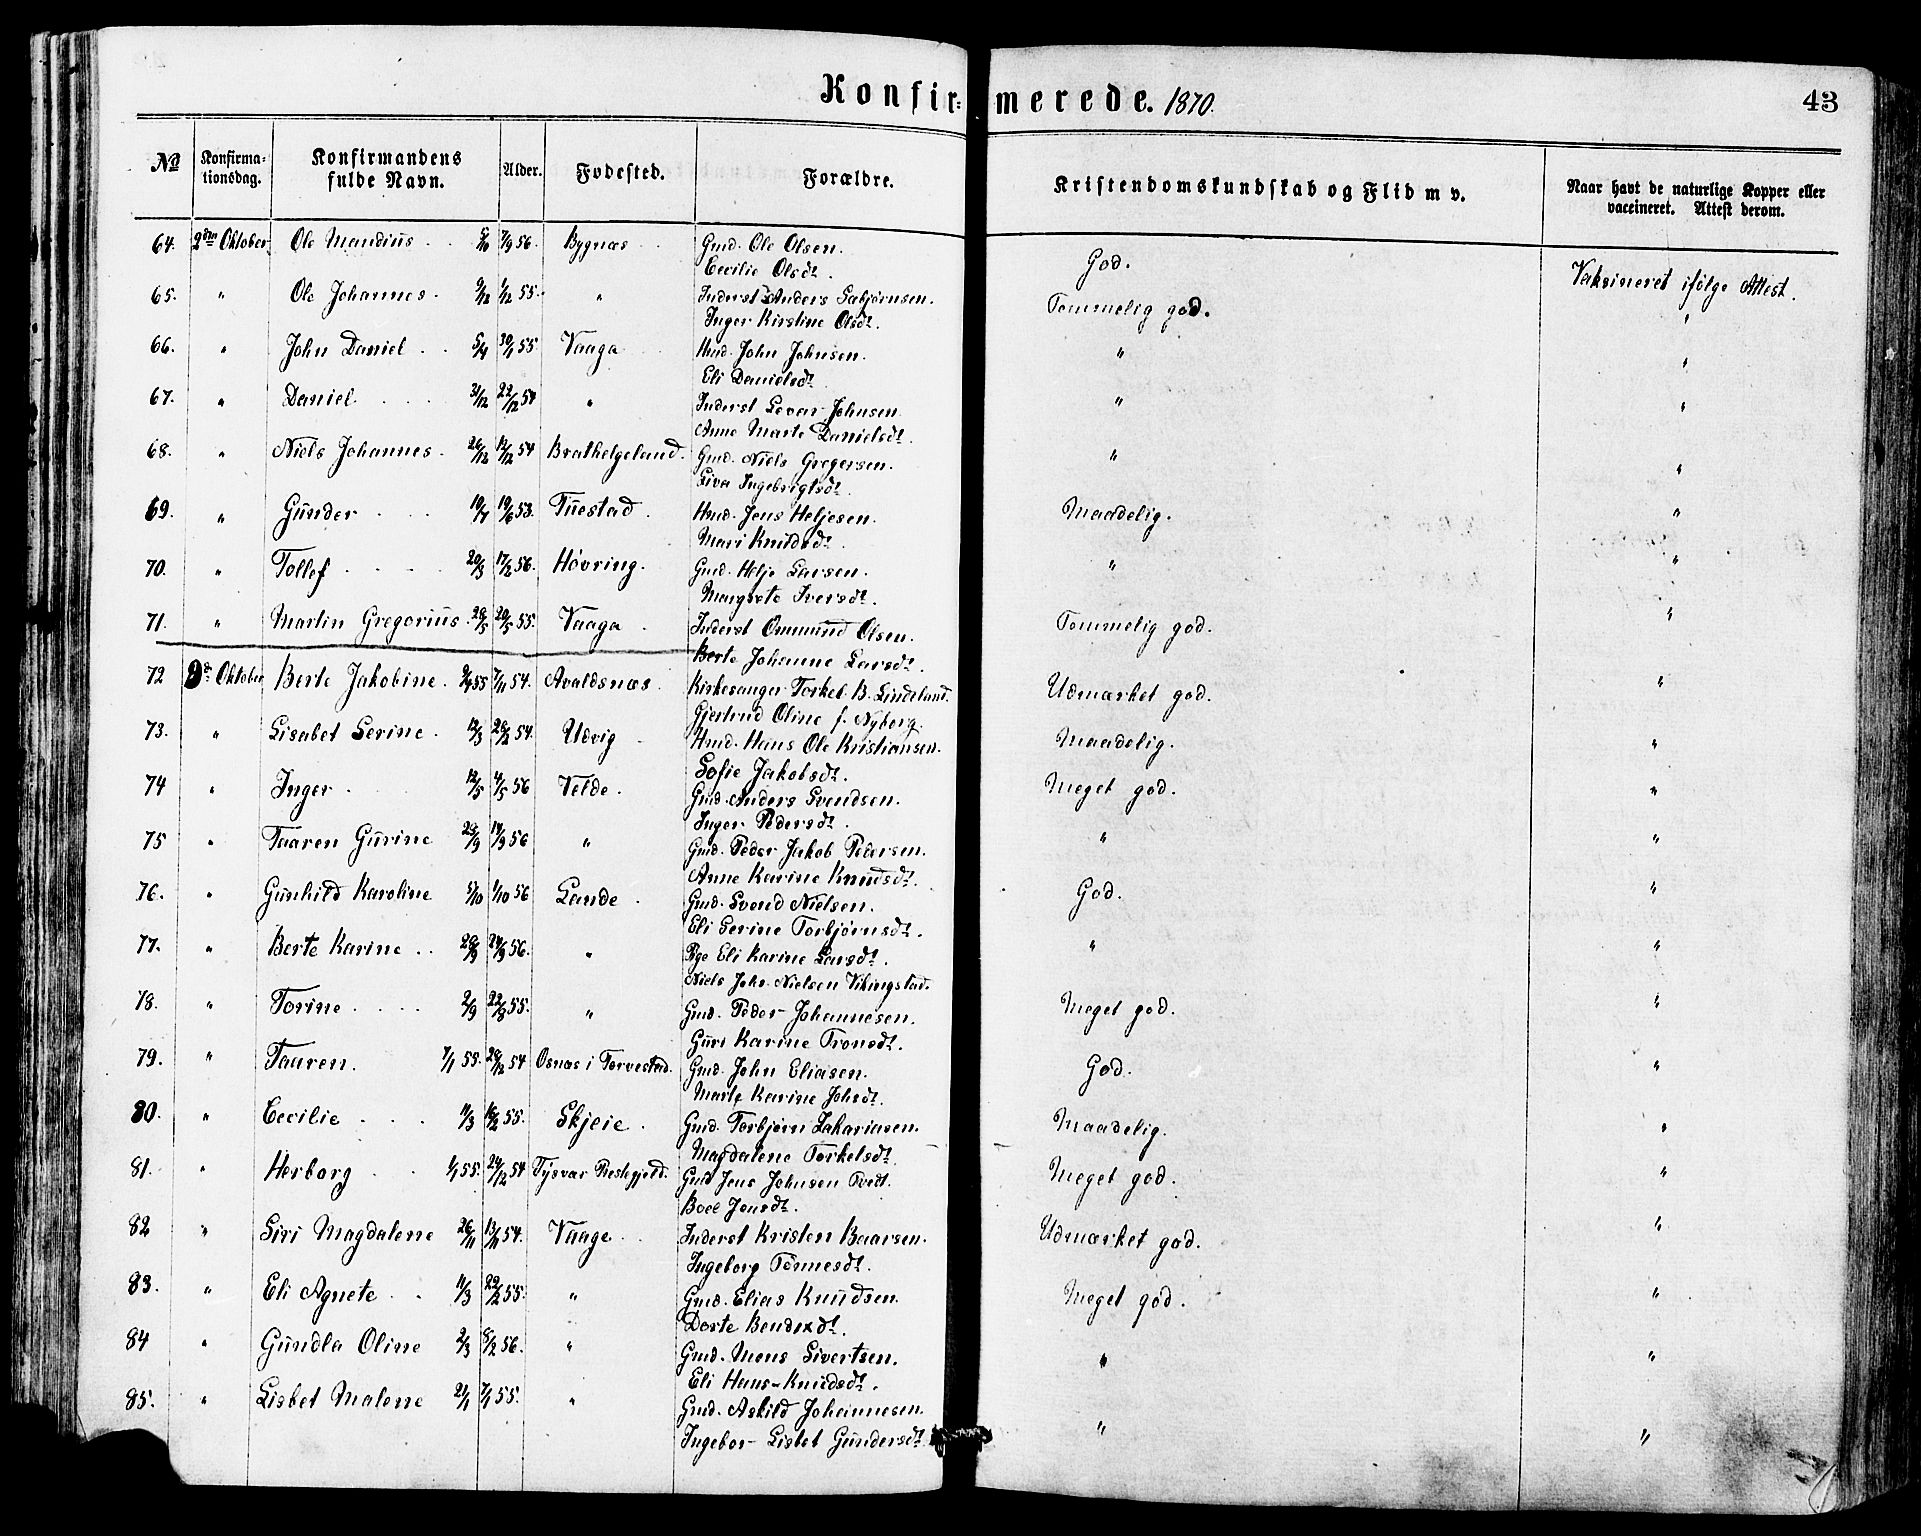 Konfirmerede. 1870.
43
No Konfirmationsdag. Konfirmandens fulde Navn. Alder. Fødested. Forældre. Kristendomskundskab og Flid m v. Naar havt de naturlige Kopper eller vaccineret. Attest derom.
64. 2den Oktober Ole Mandius 7/9 56. Bygnes Gmd. Ole Olsen. God. Vaksineret ifölge Attest.
Cecilie Olsdt.
65. " Ole Johannes. 9/12 1/12 55. " Inderst Anders Sabjørnsen. Temmelig god. "
Inger Kirstine Olsdt.
66. " John Daniel 5/4 30/1 55 Vaaga Hmd. John Johnsen. " "
Eli Danielsdt.
67. " Daniel 31/12 22/12 54 " Inderst Sevar Johnsen. " "
Anne Marte Danielsdt.
68. " Niels Johannes. 26/12 12/12 54 Brathelgeland. Gmd. Niels Gregersen. " "
Siva Ingebrigtsdt.
69. " Gunder 19/7 19/6 53. Tuestad. Hmd. Jens Heljesen. Maadelig. "
Mari Knudsdt.
70. " Tollef 20/3 17/2 56. Høvring. Gmd. Helje Larsen. " "
Margrete Iversdt.
71. " Martin Gregorius. 28/5 20/5 55. Vaaga. Inderst Ommund Olsen. Temmelig god. "
Berte Johanne Larsdt.
72 9de Oktober Berte Jakobine. 9/4 55 7/11 54. Avaldsnæs. Kirkesanger Torkel B. Lindeland. Udmærket god. "
Gjertrud Oline f. Nyberg.
73. " Lisabet Serine. 12/3 28/2 54. Udvig Hmd. Hans Ole Kristiansen. Maadelig. "
Sofie Jakobsdt.
74 " Inger. 12/5 4/5 56 Velde. Gmd. Anders Svendsen. Meget god. "
Inger Pedersdt.
75 " Taaren Gurine 23/9 14/9 56 " Gmd. Peder Jakob Pedersen. " "
Anne Karine Knudsdt.
76. " Gunhild Karoline 5/10 1/10 56 Lande. Gmd. Svend Nielsen. God. "
Eli Serine Torbjørnsdt.
77. " Berte Karine 28/9 24/9 56. " Pge Eli Karine Larsdt. " "
Niels Johs. Nielsen Vikingstad.
78. " Torine 2/9 22/8 55. " Gmd. Peder Johannesen. Meget god. "
Guri Karine Tronsdt.
79. " Tauren. 7/1 55. 28/12 54 Osnæs i Torvestad. Gmd. John Eliasen. God. "
Marte Karine Johsdt.
80. " Cecilie 11/3 18/2 55. Skjeie. Gmd. Torbjørn Zakariasen. Maadelig. "
Magdalene Torkelsdt.
81. " Herborg 1/1 55. 24/12 54 Tysvær Prestegjeld. Gmd Jens Johnsen Tvedt. Meget god. "
Boel Jensdt.
82 " Siri Magdalene 26/11 13/11 54. Vaage Inderst Kristen Baarsen. Udmærket god. "
Ingeborg Tønnesdt.
83. " Eli Agnete 11/3 22/2 55. " Gmd. Elias Knudsen. Meget god. "
Dorte Bendixdt.
84 " Gundla Oline 2/3 8/2 56. " Gmd. Mons Sivertsen. " "
Eli Hans-Knudsdt.
85. " Lisbet Malene 21/1 7/1 55. " Gmd. Askild Johannesen. " "
Ingebor- Lisbet Gundersdt.